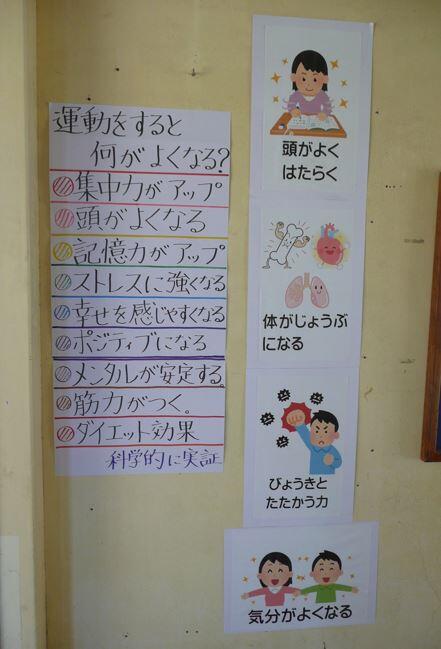 運動をすると
何がよくなる?
集中力がアップ
頭がよくなる
記憶力がアップ
ストレスに強くなる
幸せを感じやすくなる
ポジティブになる
メンタルが安定する。
筋力がつく。
ダイエット効果
科学的に実証
頭がよく
はたらく
体がじょうぶ
になる
びょうきと
たたかう力
気分がよくなる